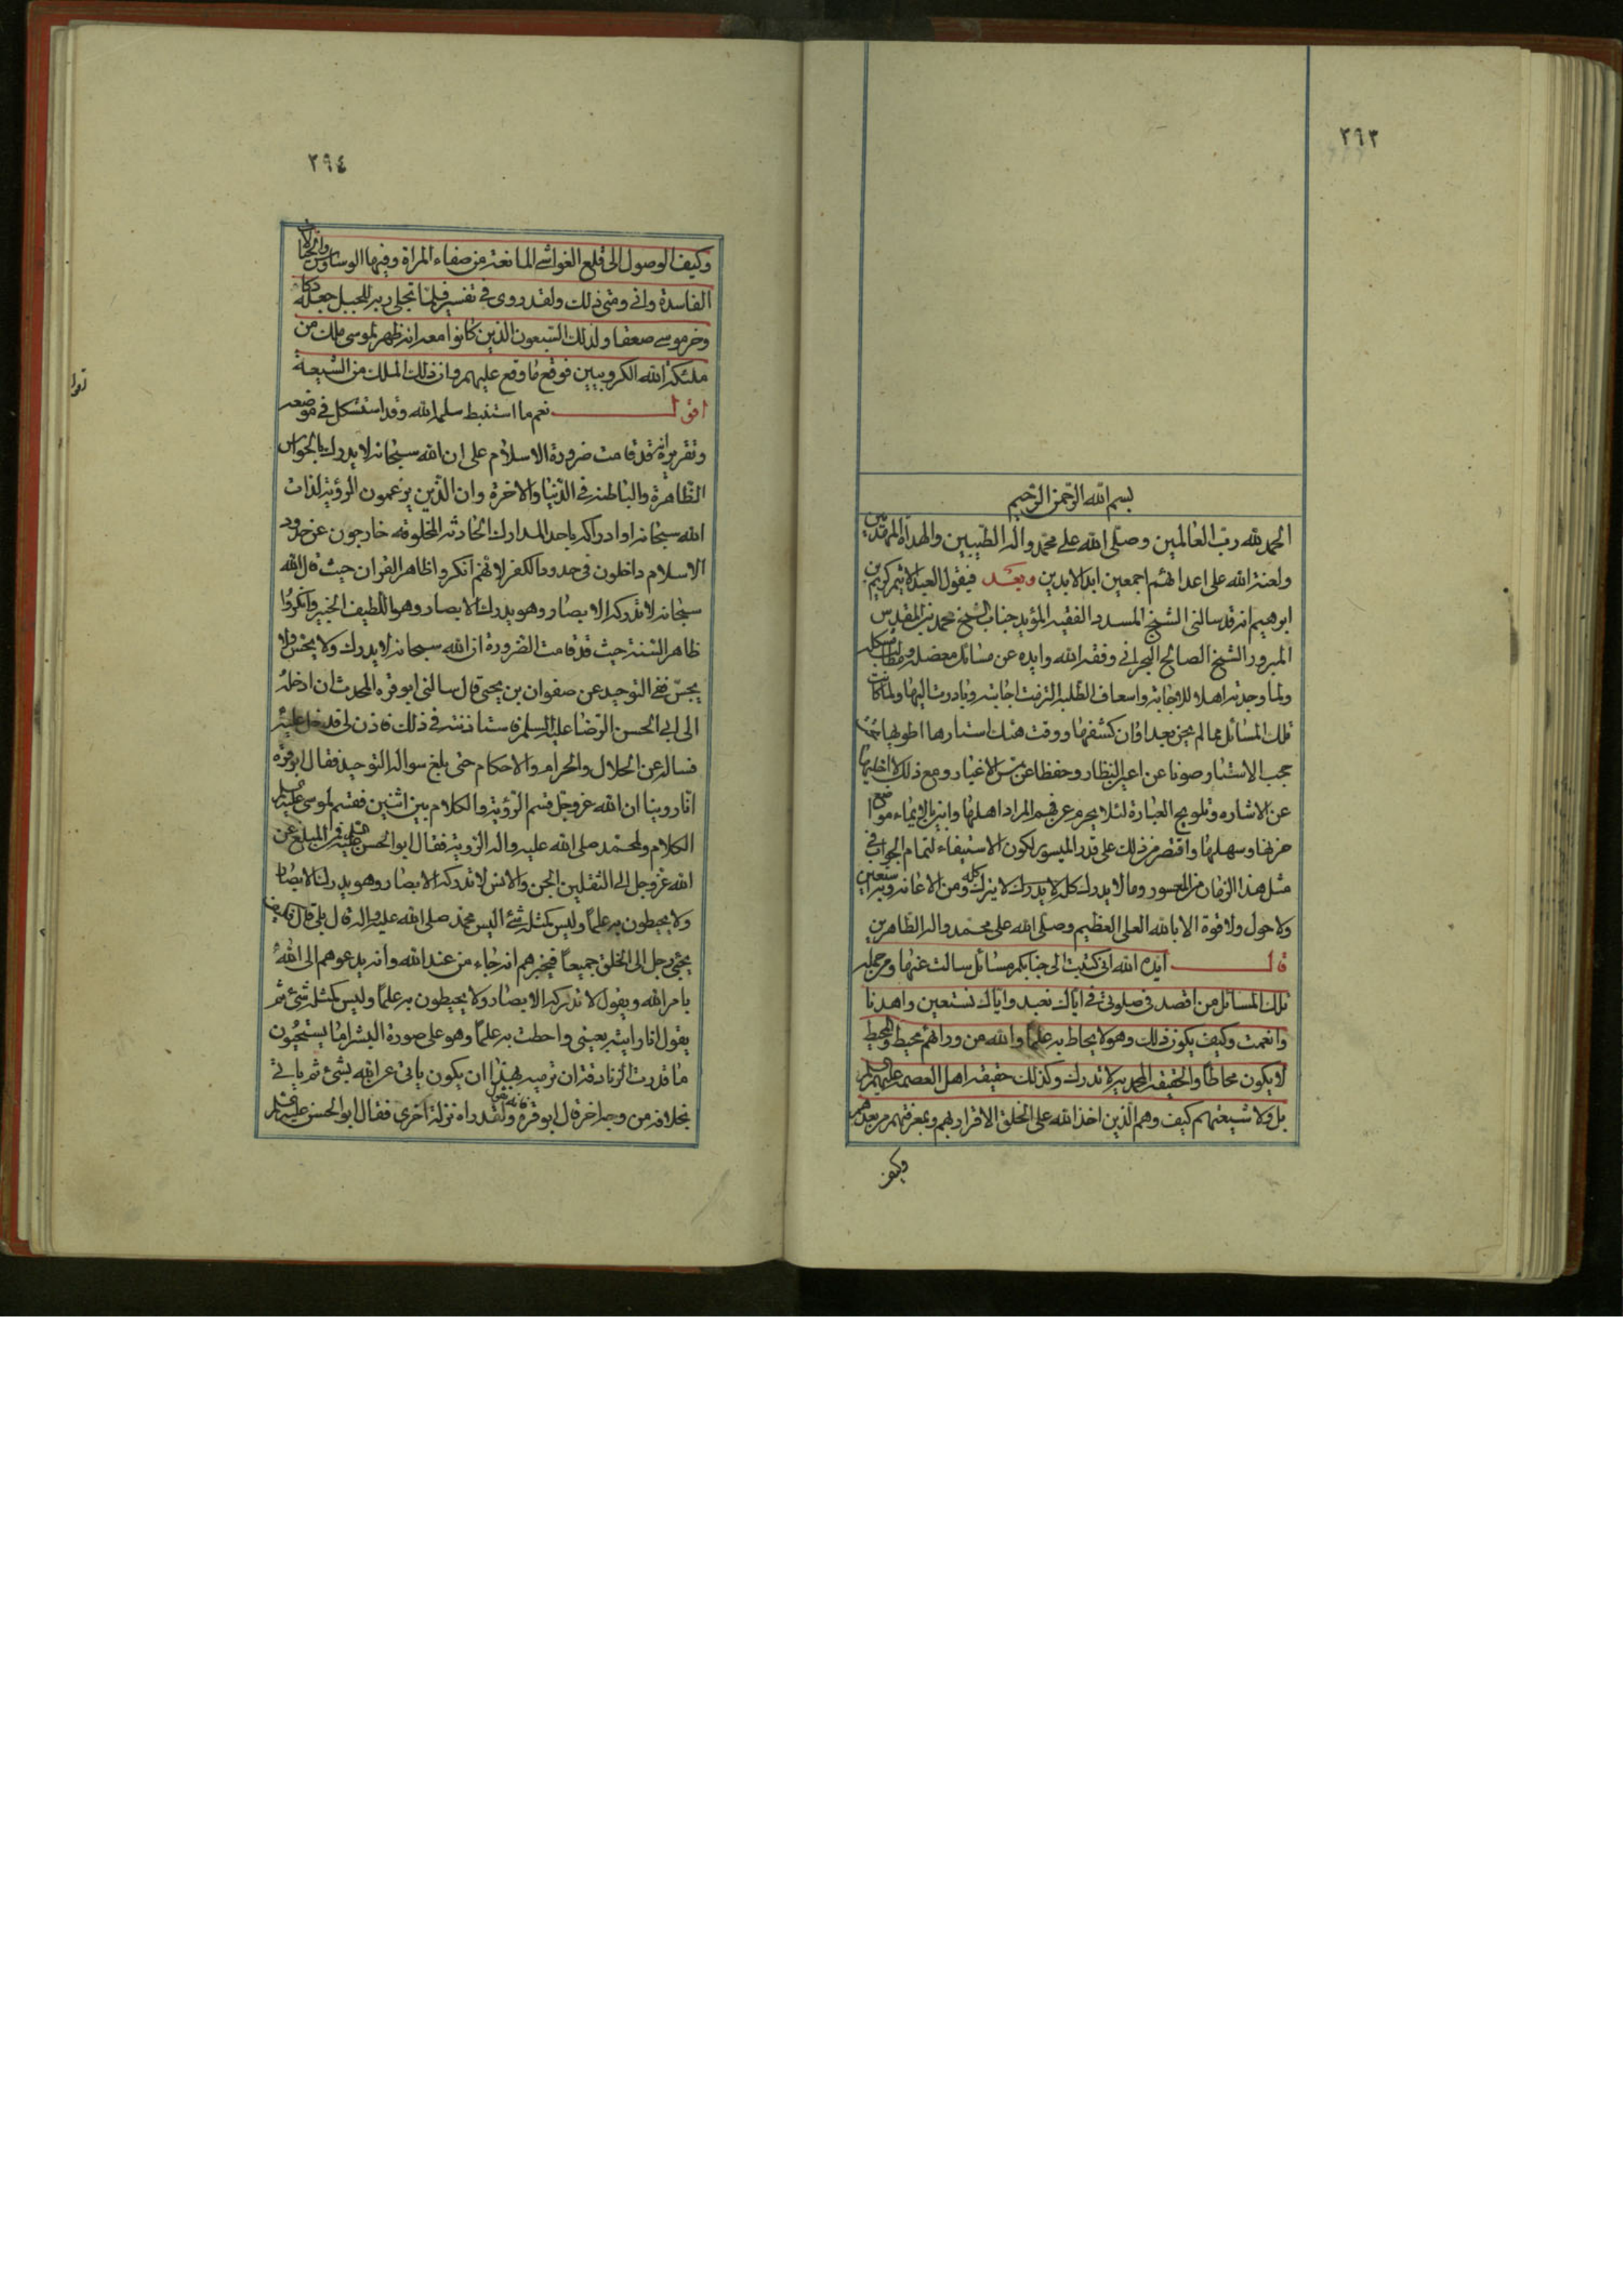 ٢٩٣
بسم الله الرحمن الرحيم
الحمد لله رب العالمين وصلى الله على محمد واله الطيبين والهداة المهتدين
ولعنة الله على اعدائهم اجمعين ابد الابدين وبعد فيقول العبد الاثيم كريم بن
ابرهيم انه قد سالنى الشيخ المسدد الفقيه المؤيد جناب الشيخ محمد بن المقدس
المبرور الشيخ الصالح البحرانى وفقه الله وايده عن مسائل معضلة ومطالب مشكله
ولما وجدته اهلا للاجابة واسعاف الطلبه التزمت اجابته وبادرت اليها ولما كانت
تلك المسائل مما لم يحن بعد اوان كشفها ووقت هتك استارها اطويها تحت
حجب الاستتار صونا عن اعين النظار وحفظا عن مس الاغيار ومع ذلك لا اخليها
عن الاشاره وتلويح العبارة لئلا يحرم عن فهم المراد اهلها واتى بالايماء مواضع
حزنها وسهلها واقتصر من ذلك على قدر الميسور لكون الاستيفاء لتمام الجواب فى
مثل هذا الزمان من المعسور وما لا يدرك كله لا يترك كله ومن الاعانه وبه استعين
ولا حول ولا قوة الا بالله العلى العظيم وصلى الله على محمد واله الطاهرين
قال ايده الله انى كتبت الى جنابكم مسائل سالت عنها ومن جملة
تلك المسائل من اقصد فى صلوتى فى اياك نعبد واياك نستعين واهدنا
وانعمت وكيف يكون ذلك وهو لا يحاط به علما والله من ورائهم محيط والمحيط
لا يكون محاطا والحقيقه المحمديه لا تدرك وكذلك حقيقه اهل العصمه عليهم السلم
بل ولا شيعتهم كيف وهم الذين اخذ الله على الخلق الاقرار بهم وبمعرفتهم من بعدهم
وكيف
٢٩٤
وكيف الوصول الى قلع الغواشى المانعة من صفاء المراة وفيها الوساوس والخيالات
الفاسدة وانى ومتى ذلك ولقد روى فى تفسير فلما تجلى ربه للجبل جعله دكا
وخر موسى صعقا ولذلك السبعون الذين كانوا معه انه ظهر لموسى ملك من
ملئكة الله الكروبيين فوقع ما وقع عليهم وان ذلك الملك من الشيعة
اقول نعم ما استنبط سلمه الله وقد استشكل فى موضعه
وتقريره انه قد قامت ضرورة الاسلام على ان الله سبحانه لا يدرك بالحواس
الظاهرة والباطنه فى الدنيا والاخرة وان الذين يزعمون الرؤية لذات
الله سبحانه او ادراكه باحد المدارك الحادثه المخلوقه خارجون عن حدود
الاسلام داخلون فى حدود الكفر لانهم انكروا ظاهر القران حيث قال الله
سبحانه لا تدركه الابصار وهو يدرك الابصار وهو اللطيف الخبير وانكروا
ظاهر السنة حيث قد قامت الضرورة ان الله سبحانه لا يدرك ولا يحس ولا
يجس ففى التوحيد عن صفوان بن يحيى قال سالنى ابو قره المحدث ان ادخله
الى ابى الحسن الرضا عليه السلم فاستاذنته فى ذلك فاذن لى فدخل عليه
فساله عن الحلال والحرام والاحكام حتى بلغ سواله التوحيد فقال ابو قره
انا روينا ان الله عز وجل قسم الرؤية والكلام بين اثنين فقسم لموسى عليه السلم
الكلام ولمحمد صلى الله عليه واله الرؤية فقال ابو الحسن عليه السلم فمن المبلغ عن
الله عز وجل الى الثقلين الجن والانس لا تدركه الابصار وهو يدرك الابصار
ولا يحيطون به علما وليس كمثله شئ اليس محمد صلى الله عليه واله قال بلى قال فكيف
يجئ رجل الى الخلق جميعا فيخبرهم انه جاء من عند الله وانه يدعوهم الى الله
بامر الله ويقول لا تدركه الابصار ولا يحيطون به علما وليس كمثله شئ ثم
يقول انا رايته بعينى واحطت به علما وهو على صورة البشر اما يستحيون
ما قدرت الزنادقة ان ترميه بهذا ان يكون ياتى عن الله بشئ ثم ياتى
بخلافه من وجه اخر قال ابو قرة فانه يقول ولقد راه نزلة اخرى فقال ابو الحسن عليه السلم